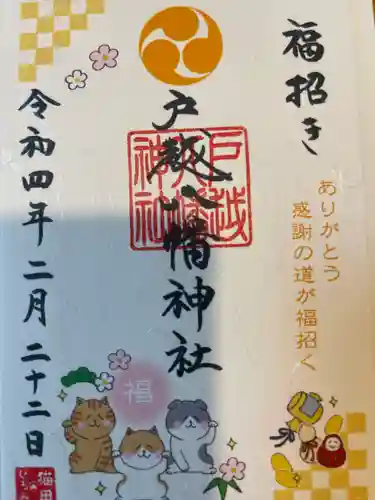 福招き
ありがとう
感謝の道が福招く
戸越八幡神社
戸越八幡神社
令和四年二月二十二日
福